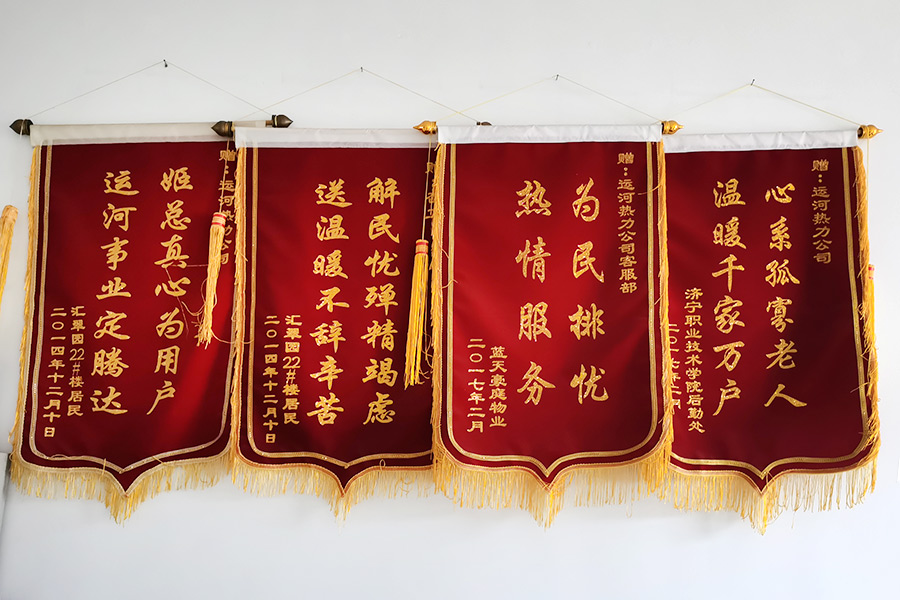 赠：运河热力公司
姬总真心为用户
运河事业定腾达
汇翠园22#楼居民
二〇一四年十二月十日
赠：
解民忧殚精竭虑
送温暖不辞辛苦
汇翠园22#楼居民
二〇一四年十二月十日
赠：运河热力公司客服部
为民排忧
热情服务
蓝天豪庭物业
二〇一七年二月
赠：运河热力公司
心系孤寡老人
温暖千家万户
济宁职业技术学院后勤处
二〇一七年二月